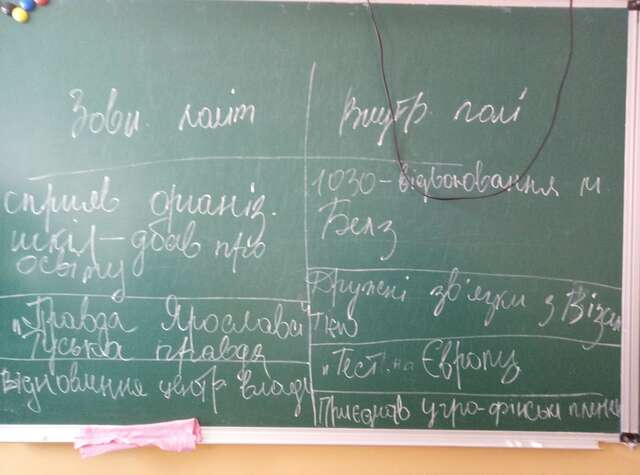 Зовн. політ
сприяв організ.
шкіл – дбав про
освіту
"Правда Ярослава"
руська правда
відновлення центр влади
Внутр. полі
1030 – відвоювання м.
Белз
Дружні зв'язки з Візан
тією
"Тест" на Європу
Приєднав угро-фінські племен